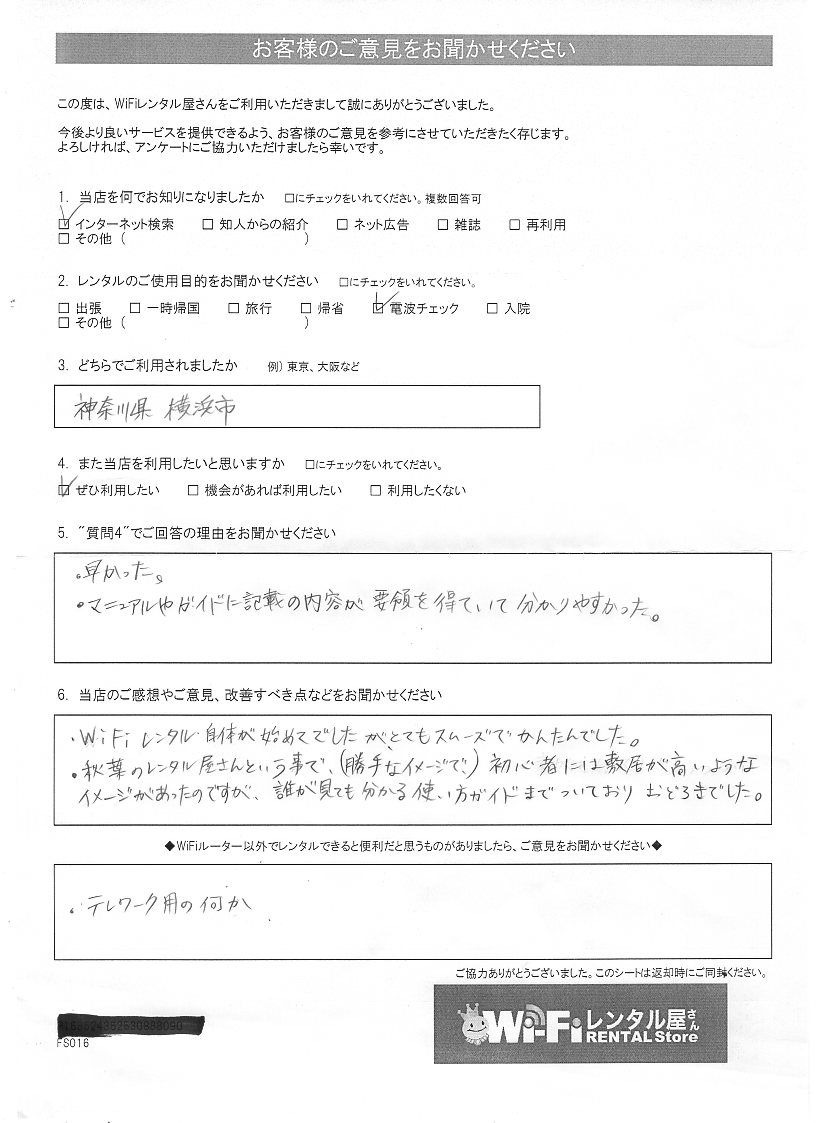 お客様のご意見をお聞かせください
この度は、WiFiレンタル屋さんをご利用いただきまして誠にありがとうございました。
今後より良いサービスを提供できるよう、お客様のご意見を参考にさせていただきたく存じます。
よろしければ、アンケートにご協力いただけましたら幸いです。
1. 当店を何でお知りになりましたか □にチェックをいれてください。複数回答可
☑ インターネット検索 □ 知人からの紹介 □ ネット広告 □ 雑誌 □ 再利用
□ その他 ( )
2. レンタルのご使用目的をお聞かせください □にチェックをいれてください。
□ 出張 □ 一時帰国 □ 旅行 □ 帰省 ☑ 電波チェック □ 入院
□ その他 ( )
3. どちらでご利用されましたか 例) 東京、大阪など
神奈川県 横浜市
4. また当店を利用したいと思いますか □にチェックをいれてください。
☑ ぜひ利用したい □ 機会があれば利用したい □ 利用したくない
5. "質問4"でご回答の理由をお聞かせください
・早かった。
・マニュアルやガイドに記載の内容が要領を得ていて分かりやすかった。
6. 当店のご感想やご意見、改善すべき点などをお聞かせください
・WiFiレンタル自体が始めてでしたがとてもスムーズでかんたんでした。
・秋葉のレンタル屋さんという事で、(勝手なイメージで、)初心者には敷居が高いような
イメージがあったのですが、誰が見ても分かる使い方ガイドまでついておりおどろきでした。
◆WiFiルーター以外でレンタルできると便利だと思うものがありましたら、ご意見をお聞かせください◆
・テレワーク用の何か
ご協力ありがとうございました。このシートは返却時にご同封ください。
FS016
Wi-Fiレンタル屋さん
RENTAL Store